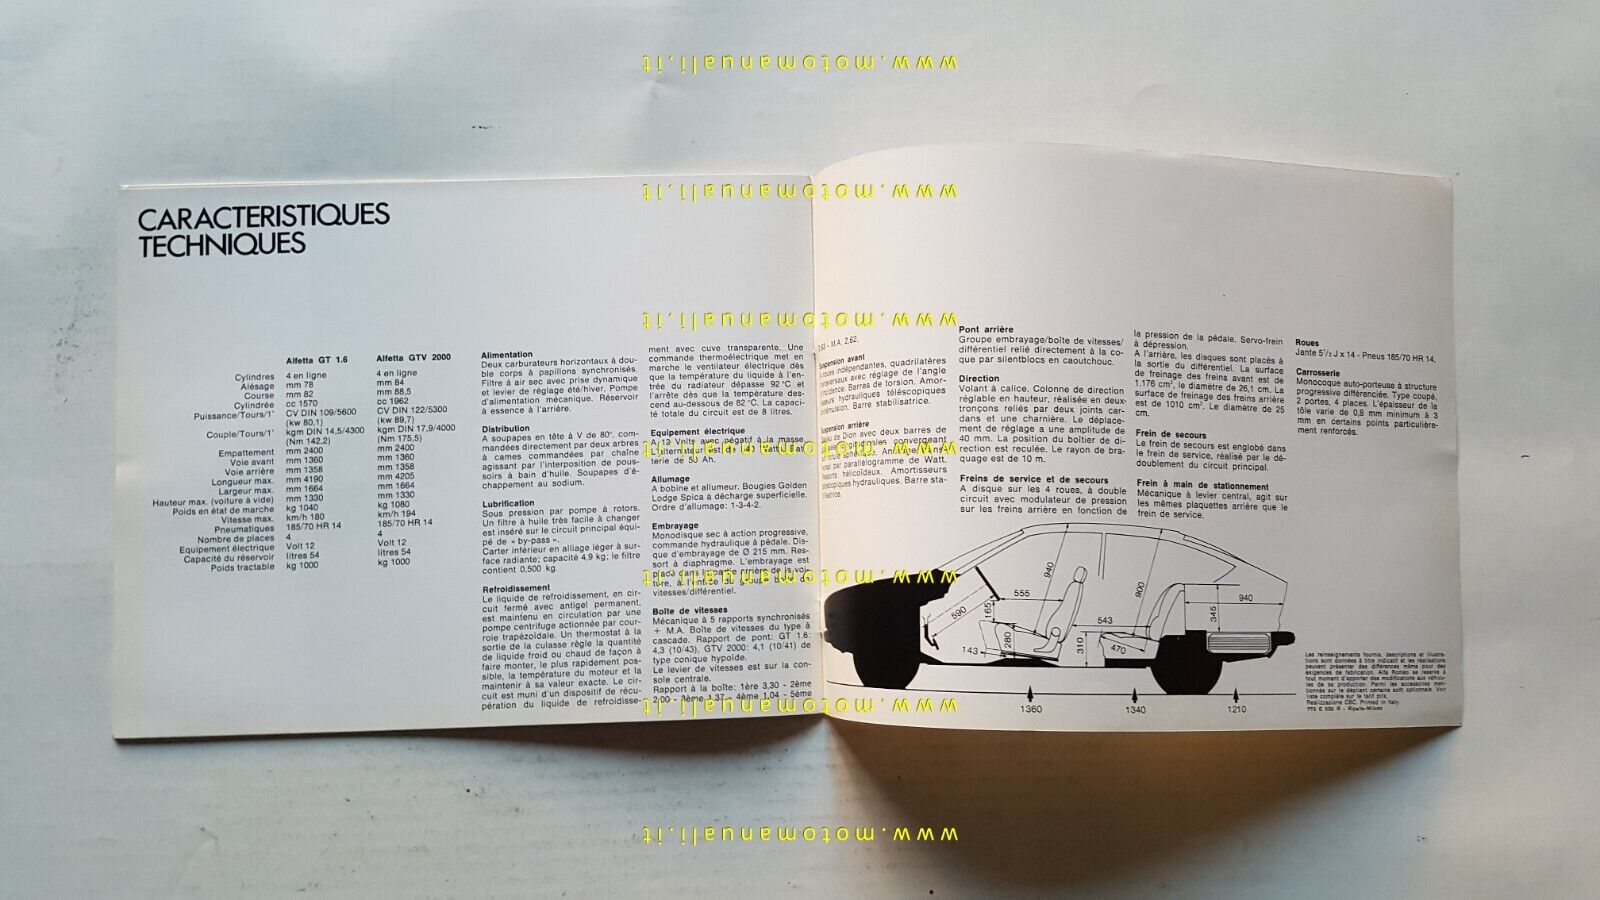 CARACTERISTIQUES
TECHNIQUES
Alfetta GT 1.6 Alfetta GTV 2000
Cylindres 4 en ligne 4 en ligne
Alésage mm 78 mm 84
Course mm 82 mm 88,5
Cylindrée cc 1570 cc 1962
Puissance/Tours/1' CV DIN 109/5600 CV DIN 122/5300
(kw 80,1) (kw 89,7)
Couple/Tours/1' kgm DIN 14,5/4300 kgm DIN 17,9/4000
(Nm 142,2) (Nm 175,5)
Empattement mm 2400 mm 2400
Voie avant mm 1360 mm 1360
Voie arrière mm 1358 mm 1358
Longueur max. mm 4190 mm 4205
Largeur max. mm 1664 mm 1664
Hauteur max. (voiture à vide) mm 1330 mm 1330
Poids en état de marche kg 1040 kg 1080
Vitesse max. km/h 180 km/h 194
Pneumatiques 185/70 HR 14 185/70 HR 14
Nombre de places 4 4
Equipement électrique Volt 12 Volt 12
Capacité du réservoir litres 54 litres 54
Poids tractable kg 1000 kg 1000
Alimentation
Deux carburateurs horizontaux à dou-
ble corps à papillons synchronisés.
Filtre à air sec avec prise dynamique
et levier de réglage été/hiver. Pompe
d'alimentation mécanique. Réservoir
à essence à l'arrière.
Distribution
A soupapes en tête à V de 80°, com-
mandées directement par deux arbres
à cames commandées par chaîne
agissant par l'interposition de pous-
soirs à bain d'huile. Soupapes d'é-
chappement au sodium.
Lubrification
Sous pression par pompe à rotors.
Un filtre à huile très facile à changer
est inséré sur le circuit principal équi-
pé de « by-pass ».
Carter inférieur en alliage léger à sur-
face radiante; capacité 4,9 kg; le filtre
contient 0,500 kg.
Refroidissement
Le liquide de refroidissement, en cir-
cuit fermé avec antigel permanent,
est maintenu en circulation par une
pompe centrifuge actionnée par cour-
roie trapézoïdale. Un thermostat à la
sortie de la culasse règle la quantité
de liquide froid ou chaud de façon à
faire monter, le plus rapidement pos-
sible, la température du moteur et la
maintenir à sa valeur exacte. Le cir-
cuit est muni d'un dispositif de récu-
pération du liquide de refroidisse-
ment avec cuve transparente. Une
commande thermoélectrique met en
marche le ventilateur électrique dès
que la température du liquide à l'en-
trée du radiateur dépasse 92 °C et
l'arrête dès que la température des-
cend au-dessous de 82 °C. La capaci-
té totale du circuit est de 8 litres.
Equipement électrique
A 12 Volts avec négatif à la masse
L'alternateur est de
terie de 50 Ah.
Allumage
A bobine et allumeur. Bougies Golden
Lodge Spica à décharge superficielle.
Ordre d'allumage: 1-3-4-2.
Embrayage
Monodisque sec à action progressive,
commande hydraulique à pédale. Dis-
que d'embrayage de Ø 215 mm. Res-
sort à diaphragme. L'embrayage est
placé dans la partie arrière de la voi-
ture, à l'entrée du groupe boîte de
vitesses/différentiel.
Boîte de vitesses
Mécanique à 5 rapports synchronisés
+ M.A. Boîte de vitesses du type à
cascade. Rapport de pont: GT 1.6:
4,3 (10/43), GTV 2000: 4,1 (10/41) de
type conique hypoïde.
Le levier de vitesses est sur la con-
sole centrale.
Rapport à la boîte: 1ère 3,30 - 2ème
2,00 - 3ème 1,37 - 4ème 1,04 - 5ème
- M.A. 2,62.
Suspension avant
A roues indépendantes, quadrilatères
transversaux avec réglage de l'angle
d'incidence. Barres de torsion. Amor-
tisseurs hydrauliques télescopiques
Barre stabilisatrice.
Suspension arrière
Pont de Dion avec deux barres de
convergeant
par parallélogramme de Watt.
Ressorts hélicoïdaux. Amortisseurs
télescopiques hydrauliques. Barre sta-
bilisatrice.
Pont arrière
Groupe embrayage/boîte de vitesses/
différentiel relié directement à la co-
que par silentblocs en caoutchouc.
Direction
Volant à calice. Colonne de direction
réglable en hauteur, réalisée en deux
tronçons reliés par deux joints car-
dans et une charnière. Le déplace-
ment de réglage a une amplitude de
40 mm. La position du boîtier de di-
rection est reculée. Le rayon de bra-
quage est de 10 m.
Freins de service et de secours
A disque sur les 4 roues, à double
circuit avec modulateur de pression
sur les freins arrière en fonction de
la pression de la pédale. Servo-frein
à dépression.
A l'arrière, les disques sont placés à
la sortie du différentiel. La surface
de freinage des freins avant est de
1.176 cm², le diamètre de 26,1 cm. La
surface de freinage des freins arrière
est de 1010 cm². Le diamètre de 25
cm.
Frein de secours
Le frein de secours est englobé dans
le frein de service, réalisé par le dé-
doublement du circuit principal.
Frein à main de stationnement
Mécanique à levier central, agit sur
les mêmes plaquettes arrière que le
frein de service.
Roues
Jante 5½ J x 14 - Pneus 185/70 HR 14.
Carrosserie
Monocoque auto-porteuse à structure
progressive différenciée. Type coupé,
2 portes, 4 places. L'épaisseur de la
tôle varie de 0,8 mm minimum à 3
mm en certains points particulière-
ment renforcés.
940
900
555
590
165
280
143
543
310
470
345
940
1360
1340
1210
Les renseignements fournis, descriptions et illustra-
tions sont données à titre indicatif et les réalisations
peuvent présenter des différences même pour des
exigences de fabrication. Alfa Romeo se réserve à
tout moment d'apporter des modifications aux véhicu-
les de sa production. Parmi les accessoires men-
tionnés sur le dépliant certains sont optionnels. Voir
liste complète sur le tarif prix.
Realizzazione CBC. Printed in Italy.
www.motomanuali.it
www.motomanuali.it
www.motomanuali.it
www.motomanuali.it
www.motomanuali.it
www.motomanuali.it
www.motomanuali.it